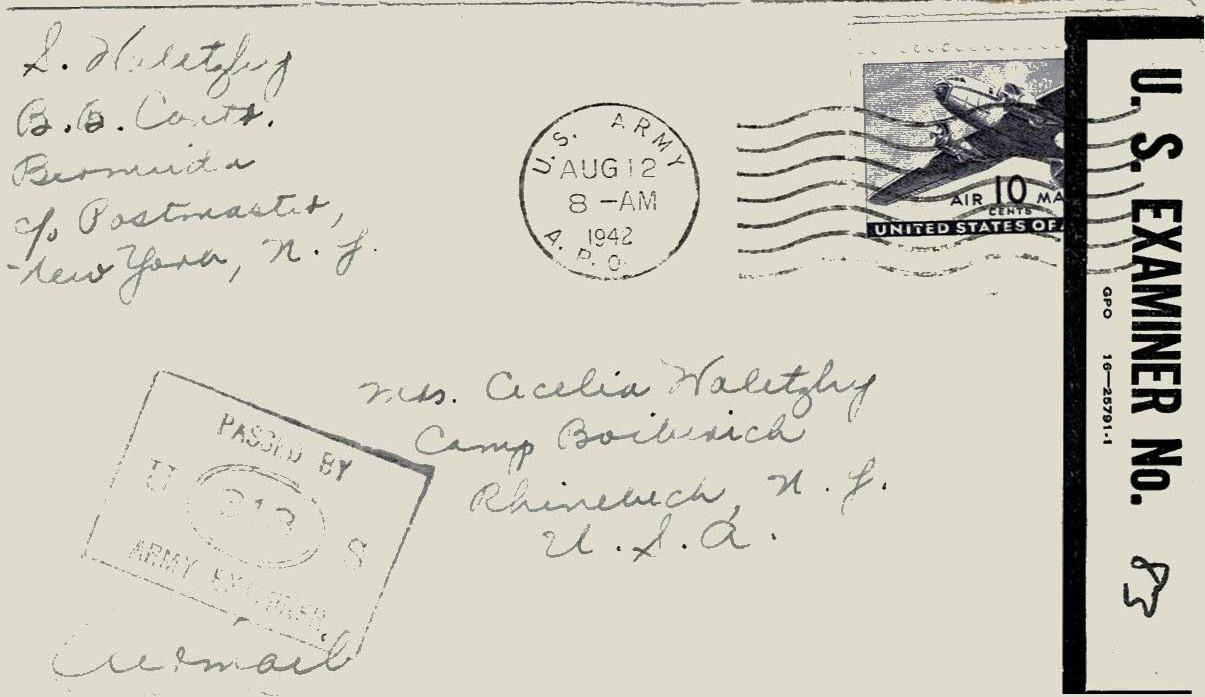 S. Waletzky
B.B. Conts.
Bermuda
c/o Postmaster,
New York, N. Y.
U.S. ARMY
AUG 12
8 -AM
1942
A. P. O.
AIR 10 MA
CENTS
UNITED STATES OF A
U. S. EXAMINER No. 83
GPO 16—28791-1
Mrs. Cecelia Waletzky
Camp Boiberich
Rhinebeck, N. Y.
U. S. A.
PASSED BY
U 213 S
ARMY EXAMINER
Airmail